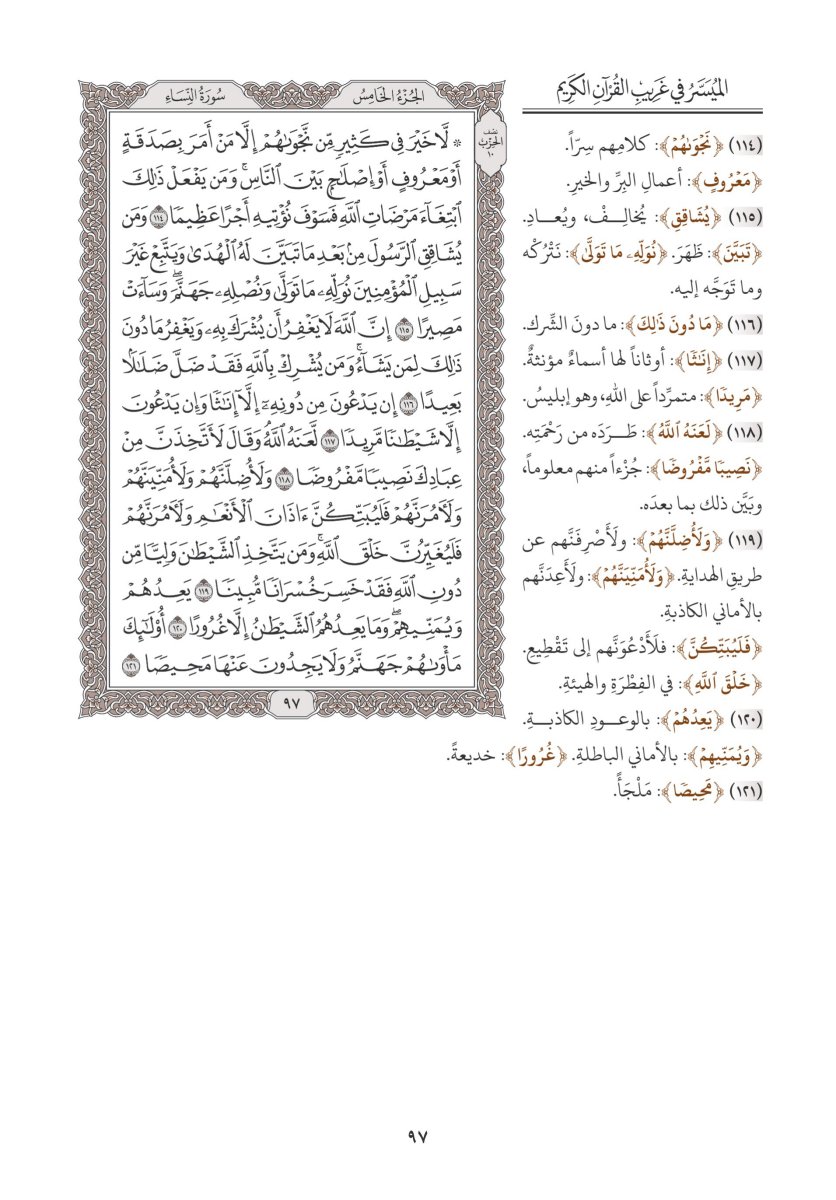 الميسر في غريب القرآن الكريم
(١١٤) ﴿نَجْوَىٰهُمْ﴾: كلامِهم سِرّاً.
﴿مَعْرُوفٍ﴾: أعمالِ البِرِّ والخيرِ.
(١١٥) ﴿يُشَاقِقِ﴾: يُخالِــفْ، ويُعــادِ.
﴿تَبَيَّنَ﴾: ظَهَرَ. ﴿نُوَلِّهِۦ مَا تَوَلَّىٰ﴾: نَتْرُكْه
وما تَوَجَّه إليه.
(١١٦) ﴿مَا دُونَ ذَٰلِكَ﴾: ما دونَ الشِّرك.
(١١٧) ﴿إِنَٰثًا﴾: أوثاناً لها أسماءٌ مؤنثةٌ.
﴿مَرِيدًا﴾: متمرِّداً على اللهِ، وهو إبليسُ.
(١١٨) ﴿لَعَنَهُ ٱللَّهُ﴾: طَــرَدَه من رَحْمَتِه.
﴿نَصِيبًا مَّفْرُوضًا﴾: جُزْءاً منهم معلوماً،
وبَيَّن ذلك بما بعدَه.
(١١٩) ﴿وَلَأُضِلَّنَّهُمْ﴾: ولَأَصْرِفَنَّهم عن
طريقِ الهدايةِ. ﴿وَلَأُمَنِّيَنَّهُمْ﴾: ولَأَعِدَنَّهم
بالأماني الكاذبةِ.
﴿فَلَيُبَتِّكُنَّ﴾: فلَأَدْعُوَنَّهم إلى تَقْطِيعِ.
﴿خَلْقَ ٱللَّهِ﴾: في الفِطْرَةِ والهيئةِ.
(١٢٠) ﴿يَعِدُهُمْ﴾: بالوعــودِ الكاذبــةِ.
﴿وَيُمَنِّيهِمْ﴾: بالأماني الباطلةِ. ﴿غُرُورًا﴾: خديعةً.
(١٢١) ﴿مَحِيصًا﴾: مَلْجَأً.
الجُزْءُ الخَامِسُ
سُورَةُ النِّسَاءِ
نصف
الحزب
١٠
۞ لَّا خَيْرَ فِى كَثِيرٍ مِّن نَّجْوَىٰهُمْ إِلَّا مَنْ أَمَرَ بِصَدَقَةٍ
أَوْ مَعْرُوفٍ أَوْ إِصْلَٰحٍۭ بَيْنَ ٱلنَّاسِۚ وَمَن يَفْعَلْ ذَٰلِكَ
ٱبْتِغَآءَ مَرْضَاتِ ٱللَّهِ فَسَوْفَ نُؤْتِيهِ أَجْرًا عَظِيمًا ١١٤ وَمَن
يُشَاقِقِ ٱلرَّسُولَ مِنۢ بَعْدِ مَا تَبَيَّنَ لَهُ ٱلْهُدَىٰ وَيَتَّبِعْ غَيْرَ
سَبِيلِ ٱلْمُؤْمِنِينَ نُوَلِّهِۦ مَا تَوَلَّىٰ وَنُصْلِهِۦ جَهَنَّمَۖ وَسَآءَتْ
مَصِيرًا ١١٥ إِنَّ ٱللَّهَ لَا يَغْفِرُ أَن يُشْرَكَ بِهِۦ وَيَغْفِرُ مَا دُونَ
ذَٰلِكَ لِمَن يَشَآءُۚ وَمَن يُشْرِكْ بِٱللَّهِ فَقَدْ ضَلَّ ضَلَٰلًۢا
بَعِيدًا ١١٦ إِن يَدْعُونَ مِن دُونِهِۦٓ إِلَّآ إِنَٰثًا وَإِن يَدْعُونَ
إِلَّا شَيْطَٰنًا مَّرِيدًا ١١٧ لَّعَنَهُ ٱللَّهُۘ وَقَالَ لَأَتَّخِذَنَّ مِنْ
عِبَادِكَ نَصِيبًا مَّفْرُوضًا ١١٨ وَلَأُضِلَّنَّهُمْ وَلَأُمَنِّيَنَّهُمْ
وَلَءَامُرَنَّهُمْ فَلَيُبَتِّكُنَّ ءَاذَانَ ٱلْأَنْعَٰمِ وَلَءَامُرَنَّهُمْ
فَلَيُغَيِّرُنَّ خَلْقَ ٱللَّهِۚ وَمَن يَتَّخِذِ ٱلشَّيْطَٰنَ وَلِيًّا مِّن
دُونِ ٱللَّهِ فَقَدْ خَسِرَ خُسْرَانًا مُّبِينًا ١١٩ يَعِدُهُمْ
وَيُمَنِّيهِمْۖ وَمَا يَعِدُهُمُ ٱلشَّيْطَٰنُ إِلَّا غُرُورًا ١٢٠ أُو۟لَٰٓئِكَ
مَأْوَىٰهُمْ جَهَنَّمُ وَلَا يَجِدُونَ عَنْهَا مَحِيصًا ١٢١
٩٧
٩٧